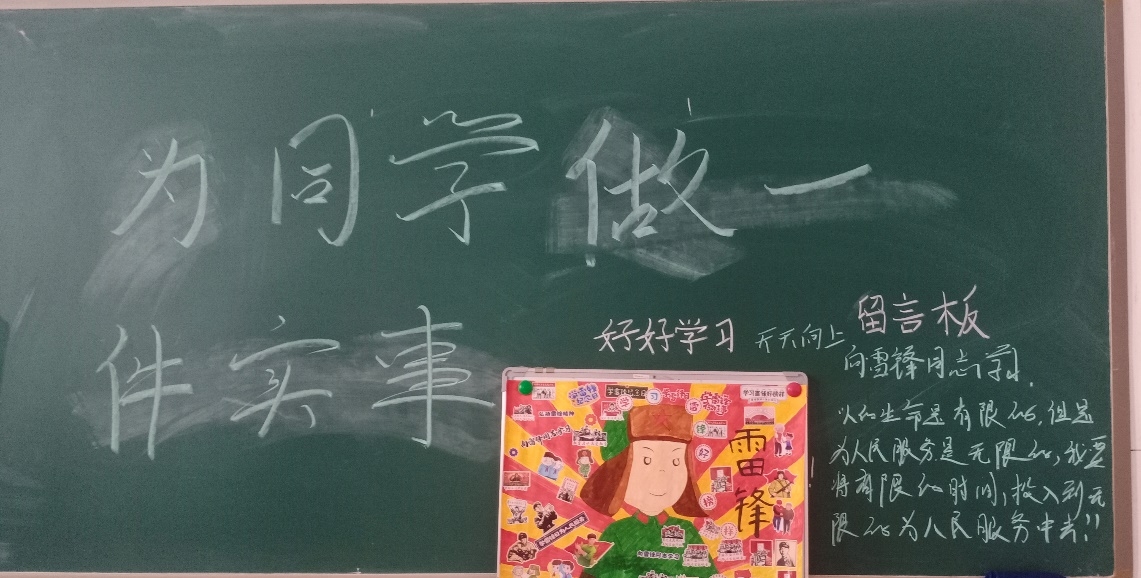 为同学做一
件实事
好好学习 天天向上
留言板
向雷锋同志学习.
人的生命是有限的,但是
为人民服务是无限的,我要
将有限的时间,投入到无
限的为人民服务中去!!
学习雷锋好榜样
雷锋
学习雷锋好榜样
向雷锋同志学习